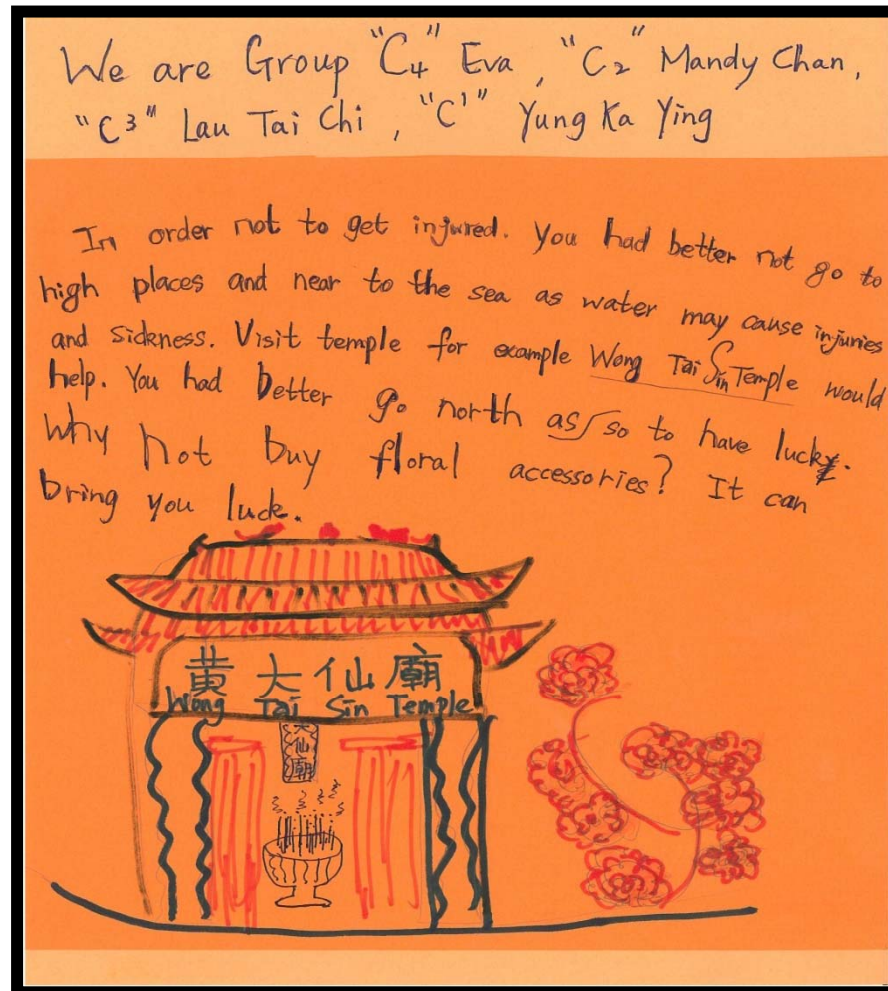 We are Group "C4" Eva, "C2" Mandy Chan,
"C3" Lau Tai Chi, "C1" Yung Ka Ying
In order not to get injured. You had better not go to
high places and near to the sea as water may cause injuries
and sickness. Visit temple for example Wong Tai Sin Temple would
help. You had better go north as so to have luck.
Why not buy floral accessories? It can
bring you luck.
黃大仙廟
Wong Tai Sin Temple
大仙廟